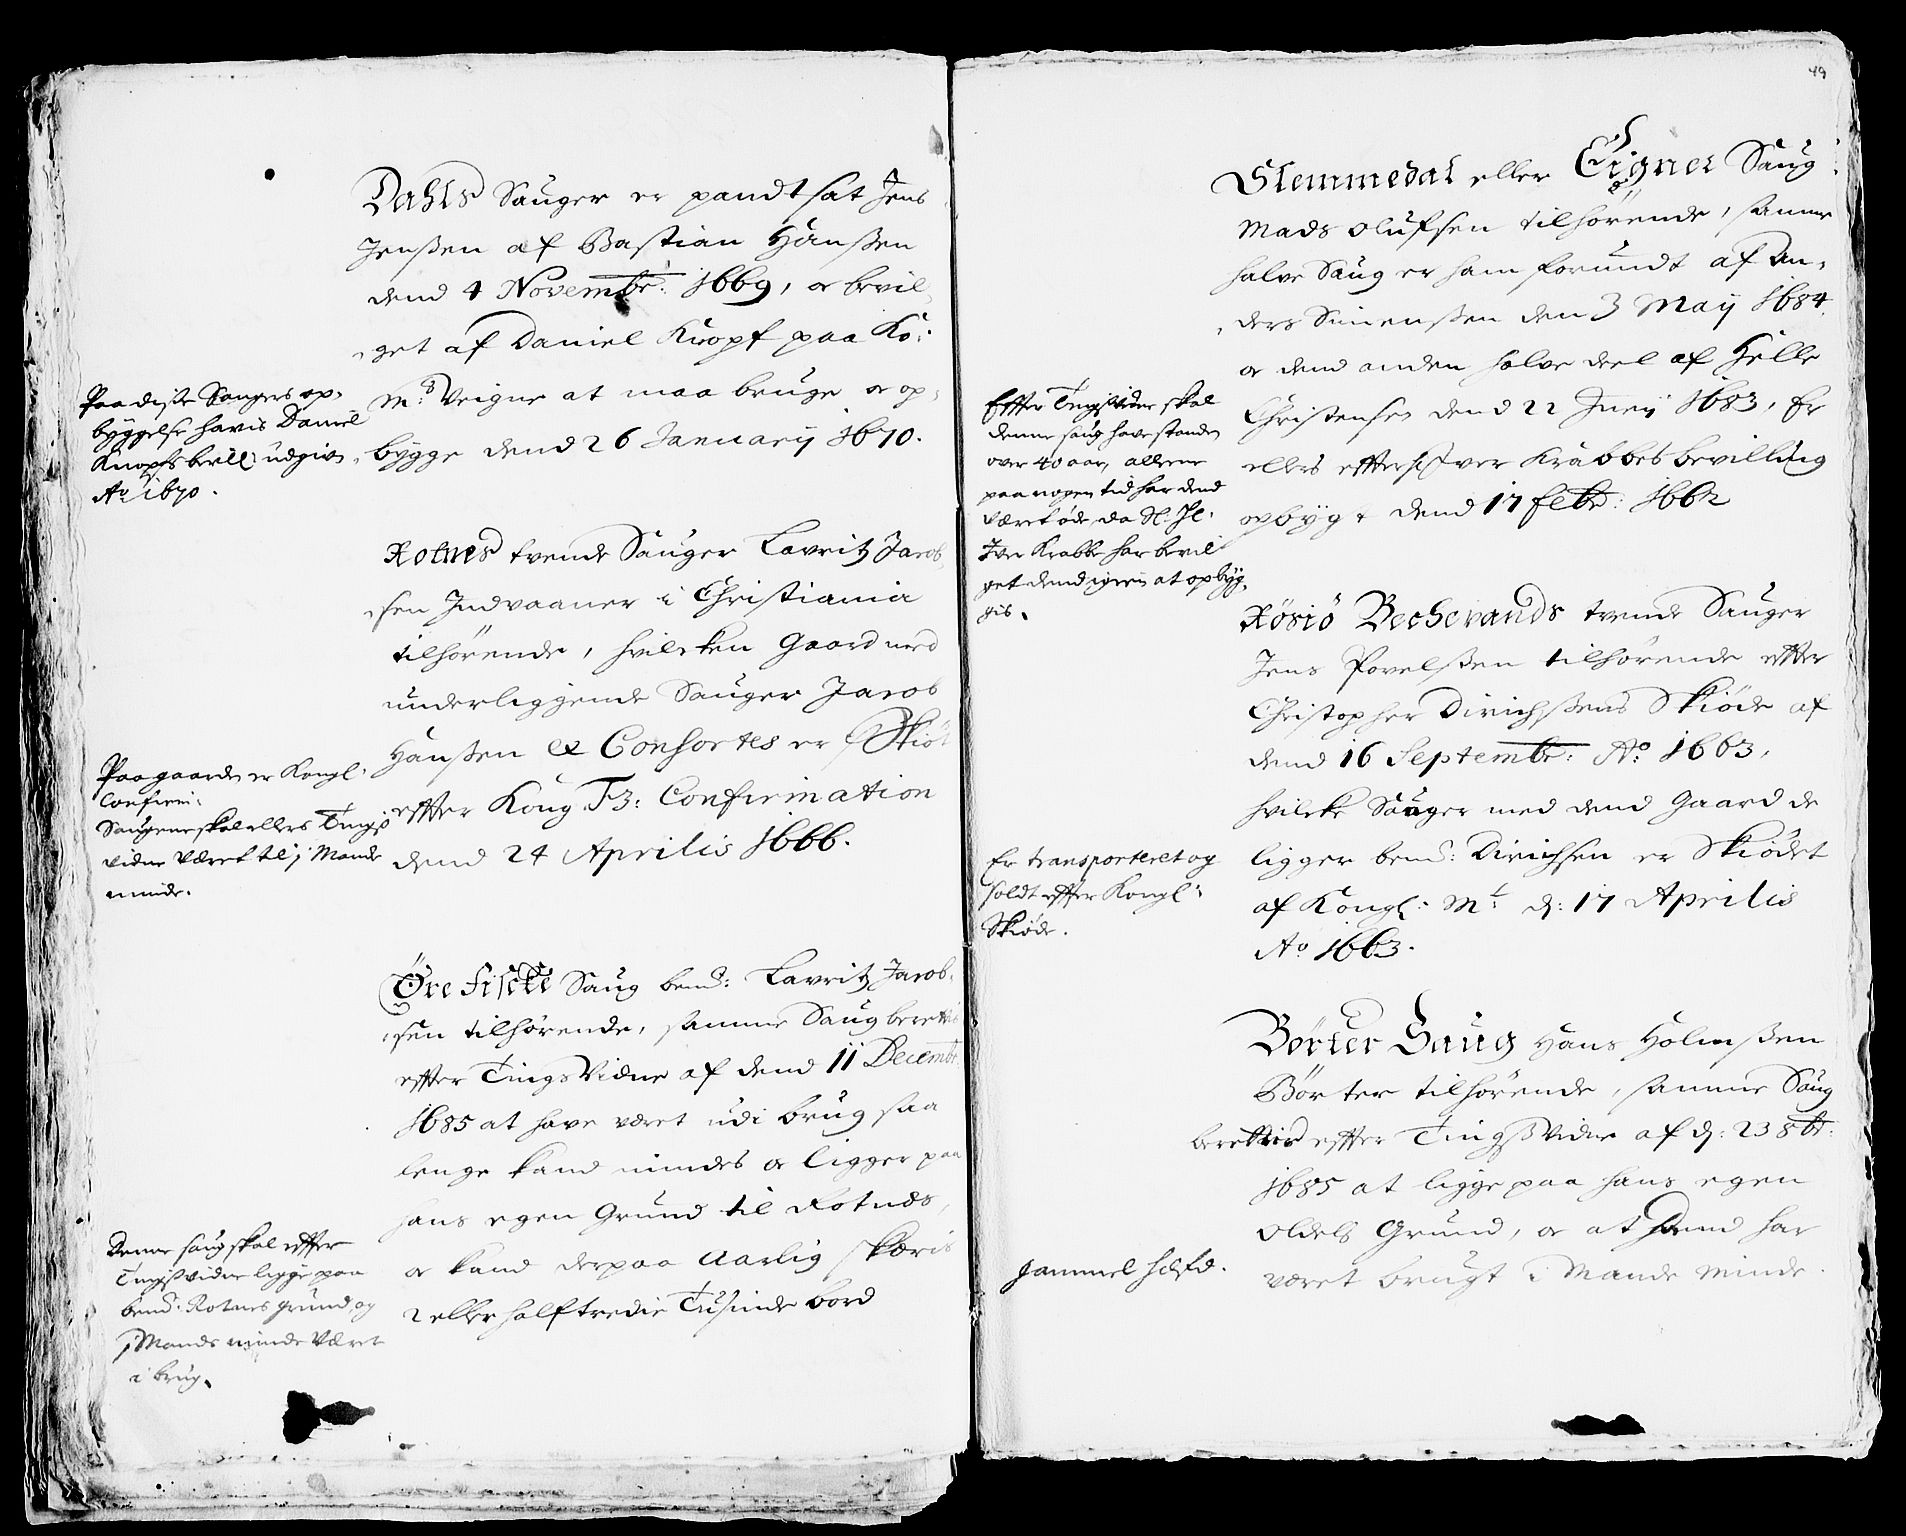 Dahls Sauger er pandtsat Jens
Jenßen af Bastian Hanßen
dend 4 Novembr: 1669, oc bevil,
,get af Daniel Knopf paa Ko:
Mts Veigne at maa bruge oc op,
bygge dend 26 Januarij 1670.
Paa diße Saugers op,
byggelse havis Daniel
Knopfs bevill: udgiven
Ao 1670.
Rotnes tvende Sauger Lavritz Jacob,
,sen Indvaaner i Christiania
tilhörende, hvilcken Gaard med
underliggende Sauger Jacob
Hanßen et Consortes er Skiöt
effter Kong F3: Confirmation
dend 24 Aprilis 1666.
Paa gaarden er Kongl:
Confirm:
Saugene skal ellers Tings
vidne været til i Mande
minde.
Öre fiscke Saug bemt: Lavritz Jacob,
,sen tilhörende, samme Saug berettis
effter TingsVidne af dend 11 Decembr
1685 at have været udi brug saa
lenge kand mindes oc ligger paa
hans egen Grund til Rotnæs,
oc kand derpaa Aarlig skæris
2 eller halftredie Tusinde bord
Denne saug skal effter
Tingßvidne ligge paa
bemt: Rotnes grund, og
i Mands minde Været
i brug.
49
Slemmedal eller Eigner Saug
Mads Olufsen tilhörende, samme
halve Saug er ham forundt af An,
,ders Simenßen den 3 Maij 1684.
oc dend anden halve deel af Helle
Christensen dend 22 Junij 1683, Er
ellers effter Iffver Krabbes bevilling
opbygt dend 17 Febr: 1662
Effter Tingsvidne skal
denne saug have standen
over 40 aar, allene
paa nogen tid har dend
været öde, da Sl. Hr.
Iver Krabbe har bevil
get dend igien at opbyg,
gis.
Rösiö Bechevands tvende Sauger
Jens Povelßen tilhörende effter
Christopher Dirichßens Skiöde af
dend 16 Septembr: Ao: 1663,
hvilcke Sauger med dend Gaard de
ligger bemt: Dirichsen er Skiödet
af Kongl: Mt: d: 17 Aprilis
Ao 1663.
Er transporteret og
soldt effter Kongl:
Skiöde.
Börter Saug Hans Holmßen
Börter tilhörende, samme Saug
berettis effter TingßVidne af d: 23 8br:
1685 at ligge paa hans egen
Odels Grund, oc at hand har
været brugt i Mande Minde.
gammel hæfd.